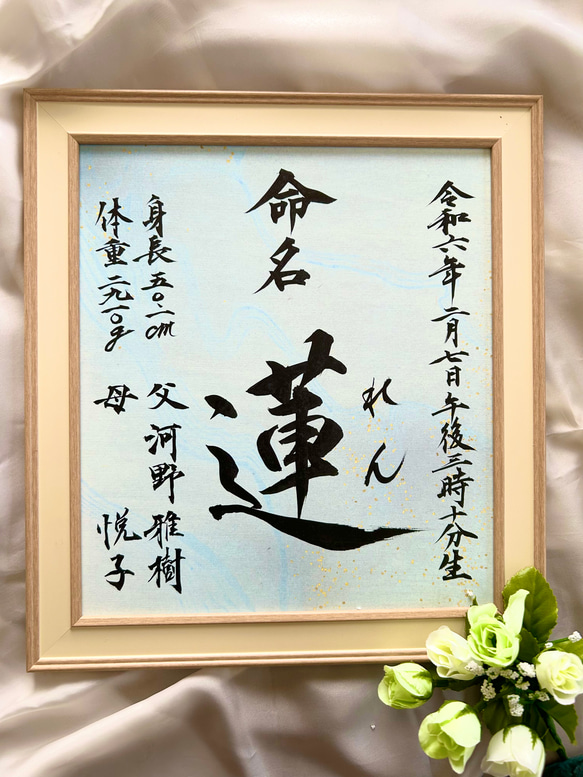 令和六年二月七日午後三時十分生
命名
蓮
れん
身長五〇.二cm
体重二九一〇g
父 河野 雅樹
母 悦子